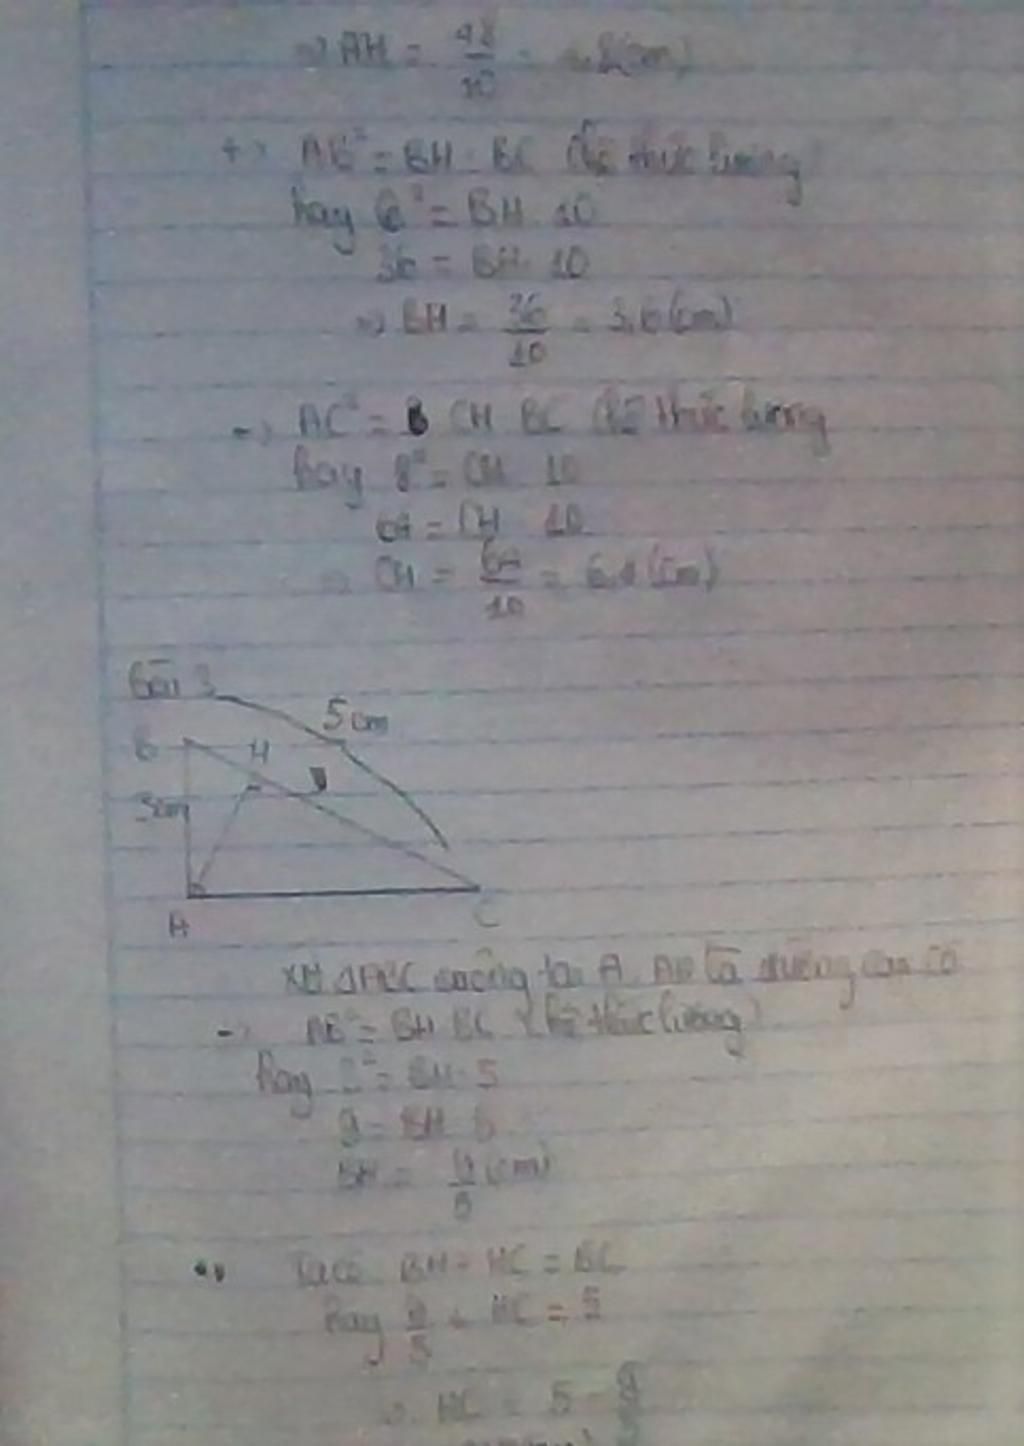 => AH = 48/10 = 4,8(cm)
+) AB² = BH . BC (hệ thức lượng)
hay 6² = BH . 10
36 = BH . 10
=> BH = 36/10 = 3,6(cm)
-) AC² = CH . BC (hệ thức lượng)
hay 8² = CH . 10
64 = CH . 10
=> CH = 64/10 = 6,4(cm)
Bài 3
5cm
B H
3cm
A C
Xét ΔABC vuông tại A, AH là đường cao có
-) AB² = BH . BC (hệ thức lượng)
hay 3² = BH . 5
9 = BH . 5
BH = 9/5 (cm)
Ta có BH + HC = BC
hay 9/5 + HC = 5
=> HC = 5 - 9/5